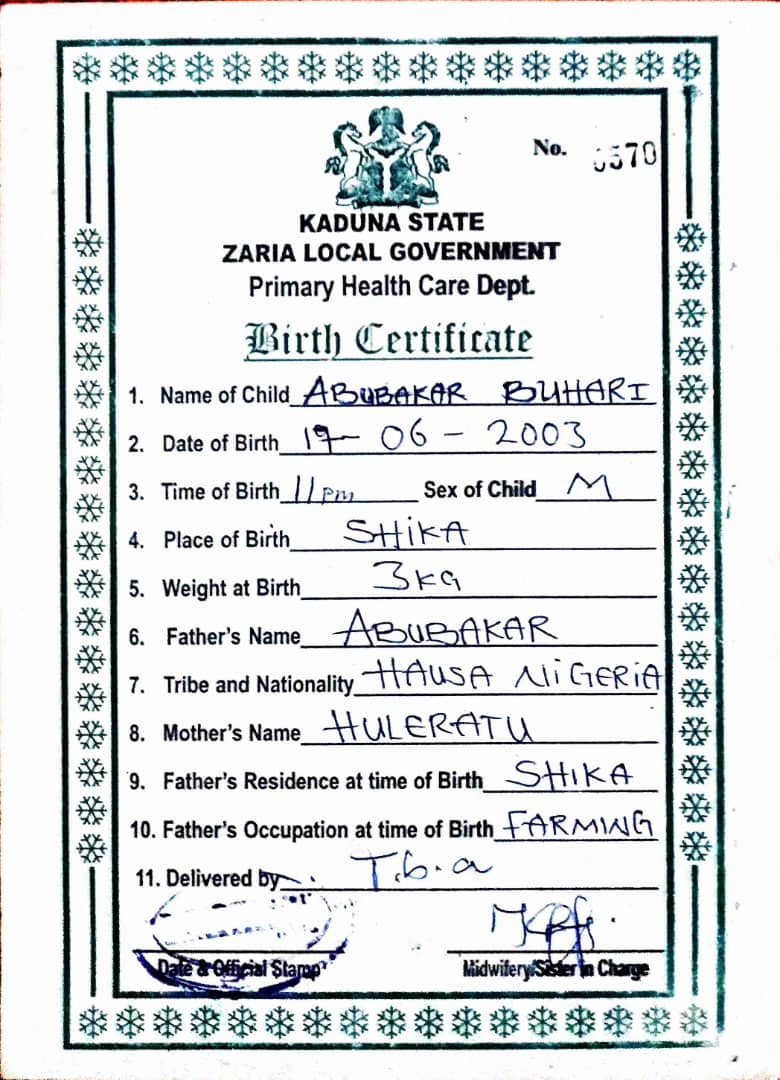 No. 0570
KADUNA STATE
ZARIA LOCAL GOVERNMENT
Primary Health Care Dept.
Birth Certificate
1. Name of Child ABUBAKAR BUHARI
2. Date of Birth 19- 06 - 2003
3. Time of Birth 11pm Sex of Child M
4. Place of Birth SHiKA
5. Weight at Birth 3KG
6. Father's Name ABUBAKAR
7. Tribe and Nationality HAUSA NiGERiA
8. Mother's Name HULERATU
9. Father's Residence at time of Birth SHIKA
10. Father's Occupation at time of Birth FARMING
11. Delivered by T.b.a
Date & Official Stamp
Midwifery/Sister in Charge